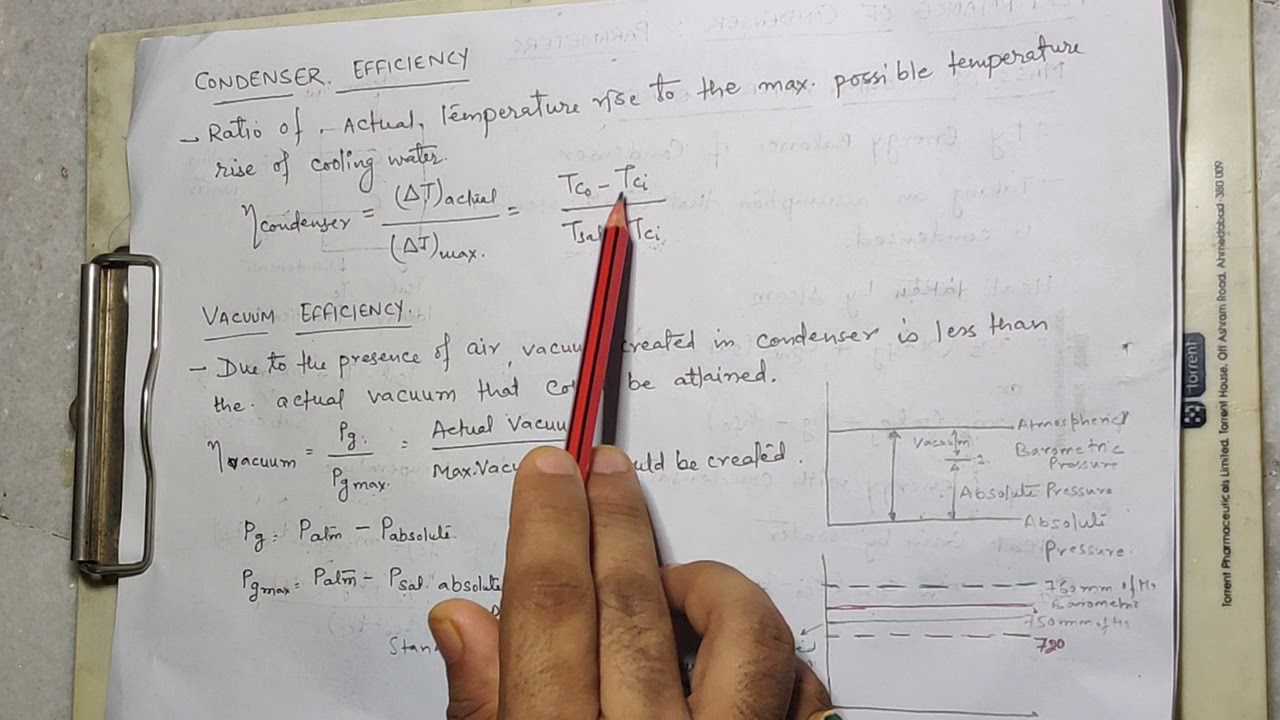 CONDENSER EFFICIENCY
- Ratio of Actual Temperature rise to the max. possible temperature
rise of cooling water.
η condenser = (ΔT)actual / (ΔT)max. = Tco - Tci / Tsat Tci
VACUUM EFFICIENCY.
- Due to the presence of air, vacuum created in condenser is less than
the actual vacuum that be attained.
η vacuum = Pg / Pg max = Actual Vacuu / Max. Vac uld be created.
Pg = Patm - Pabsolute
Pg max = Patm - Psat. absolute
Stan
Atmospheric
Barometric
Pressure
Vacuum
Absolute Pressure
Absolute
Pressure.
760 mm of Hg
Barometric
750 mm of Hg
720
Torrent
Torrent Pharmaceuticals Limited. Torrent House, Off Ashram Road, Ahmedabad-380 009